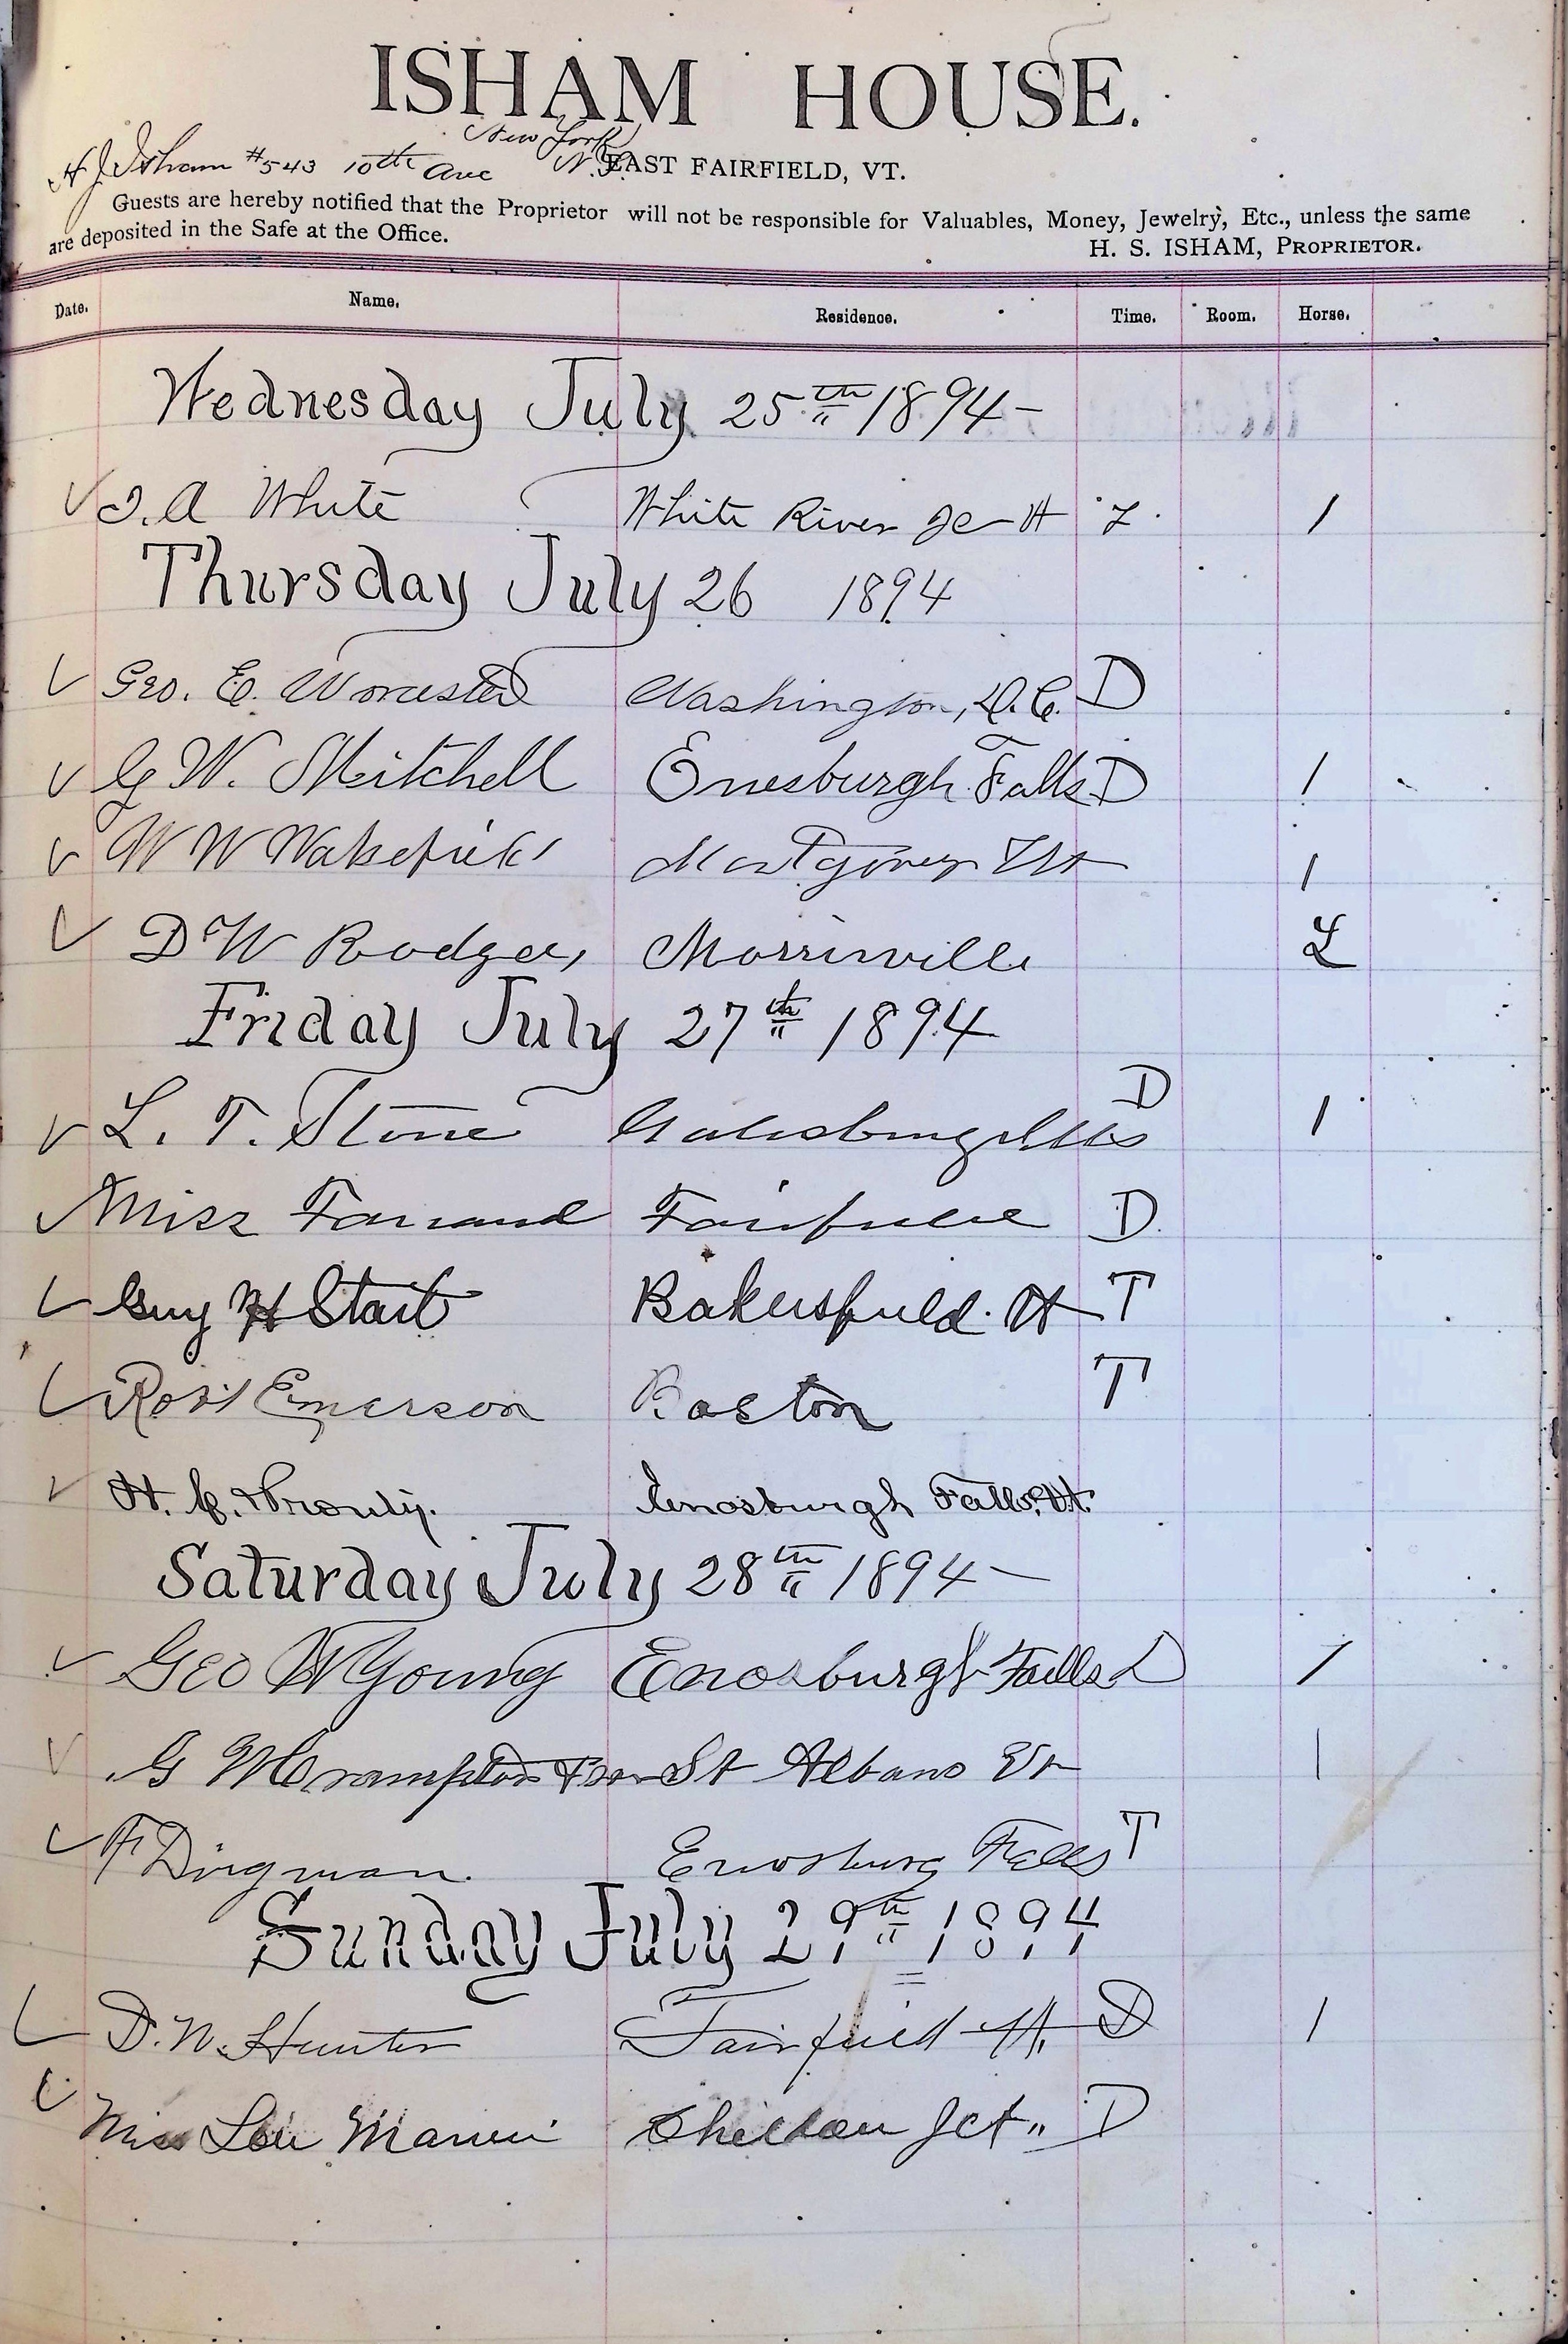 ISHAM HOUSE.
New York
H J Isham #543 10th Ave N.Y.
EAST FAIRFIELD, VT.
Guests are hereby notified that the Proprietor will not be responsible for Valuables, Money, Jewelry, Etc., unless the same
are deposited in the Safe at the Office.
H. S. ISHAM, PROPRIETOR.
Date. Name. Residence. Time. Room. Horse.
Wednesday July 25th 1894-
White White River Jc Vt 1
Thursday July 26 1894
Geo. E. Worcester Washington, D.C. D
G W. Mitchell Enosburgh Falls D 1
W W Wakefield Montgomery Vt 1
D W Rodgers Morrisville L
Friday July 27th 1894
L. T. Stone Galesburg Ills D 1
Miss Farrand Fairfield D
Guy H Start Bakersfield. Vt T
Robt Emerson Boston T
H. C. Enosburgh Falls, Vt.
Saturday July 28th 1894-
Geo W Young Enosburgh Falls D 1
G M Crampton & son St Albans Vt 1
F Dingman. Enosburg Falls T
Sunday July 29th 1894
D. W. Hunter Fairfield Vt. D 1
Miss Lou Sheldon Jct " D